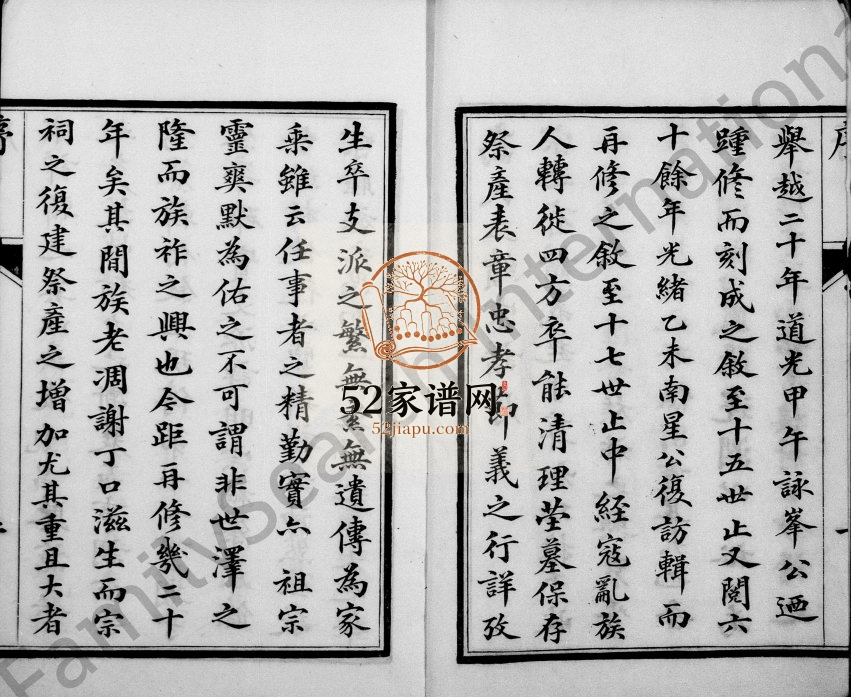 序
舉越二十年道光甲午詠峯公迺
踵修而刻成之敘至十五世止又閱六
十餘年光緒乙未南星公復訪輯而
再修之敘至十七世止中經寇亂族
人轉徙四方卒能清理塋墓保存
祭產表章忠孝節義之行詳攷
生卒支派之繁無紊無遺傳為家
乘雖云任事者之精勤實亦祖宗
靈爽默為佑之不可謂非世澤之
隆而族祚之興也今距再修幾二十
年矣其閒族老凋謝丁口滋生而宗
祠之復建祭產之增加尤其重且大者
序
52家谱网
52jiapu.com
FamilySearch International